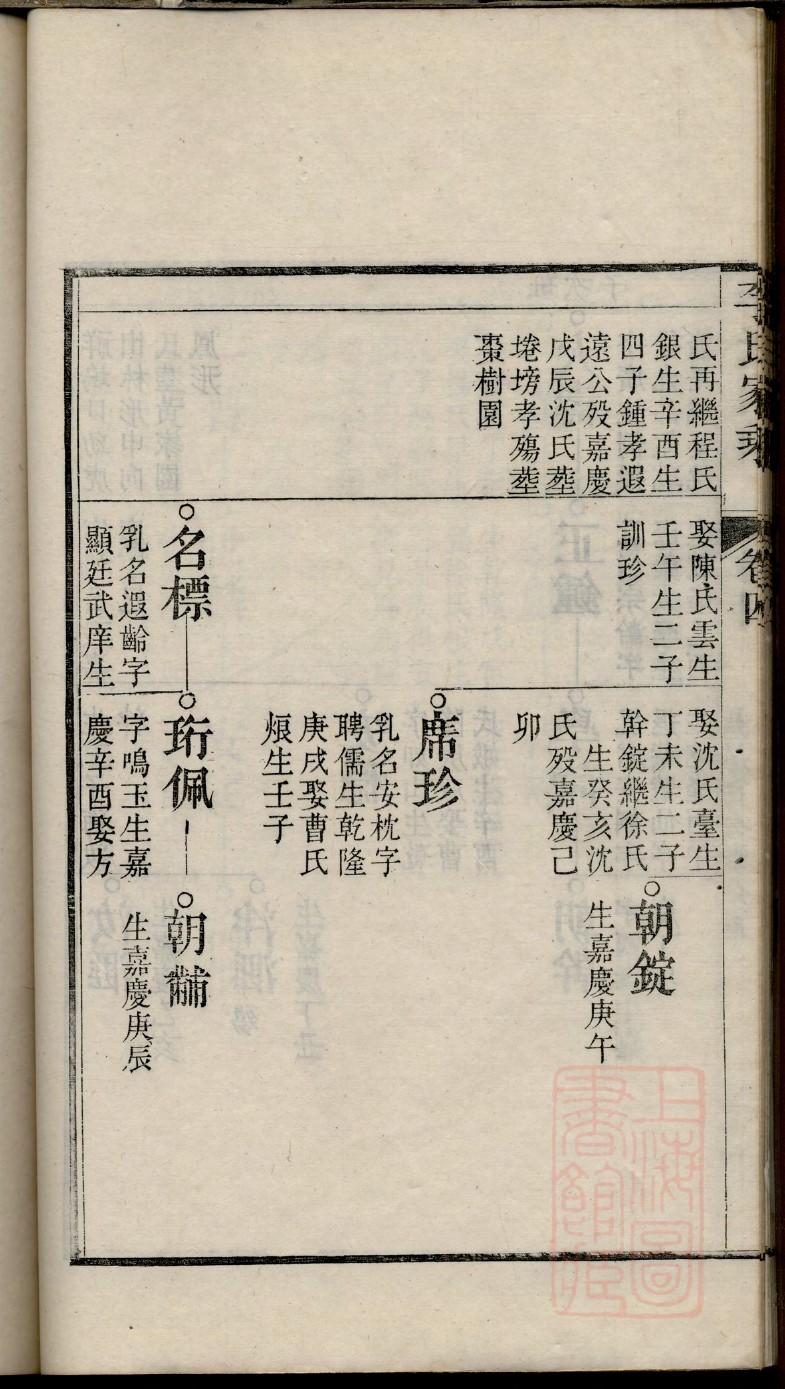 李氏家乘
卷四
氏再繼程氏
銀生辛酉生
四子鍾孝遐
遠公歿嘉慶
戊辰沈氏塟
埢塝孝殤塟
棗樹園
娶陳氏雲生
壬午生二子
訓珍
○名標
乳名遐齡字
顯廷武庠生
娶沈氏臺生
丁未生二子
幹錠繼徐氏
生癸亥沈
氏歿嘉慶己
卯
○席珍
乳名安枕字
聘儒生乾隆
庚戌娶曹氏
烺生壬子
○珩佩
字鳴玉生嘉
慶辛酉娶方
○朝錠
生嘉慶庚午
○朝黼
生嘉慶庚辰
上海圖
書館藏